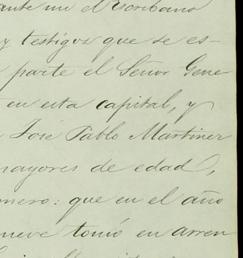 ante mi el Escribano
y testigos que se es-
parte el Señor Gene
en esta capital, y
José Pablo Martinez
mayores de edad,
mero: que en el año
nueve tomó en arren